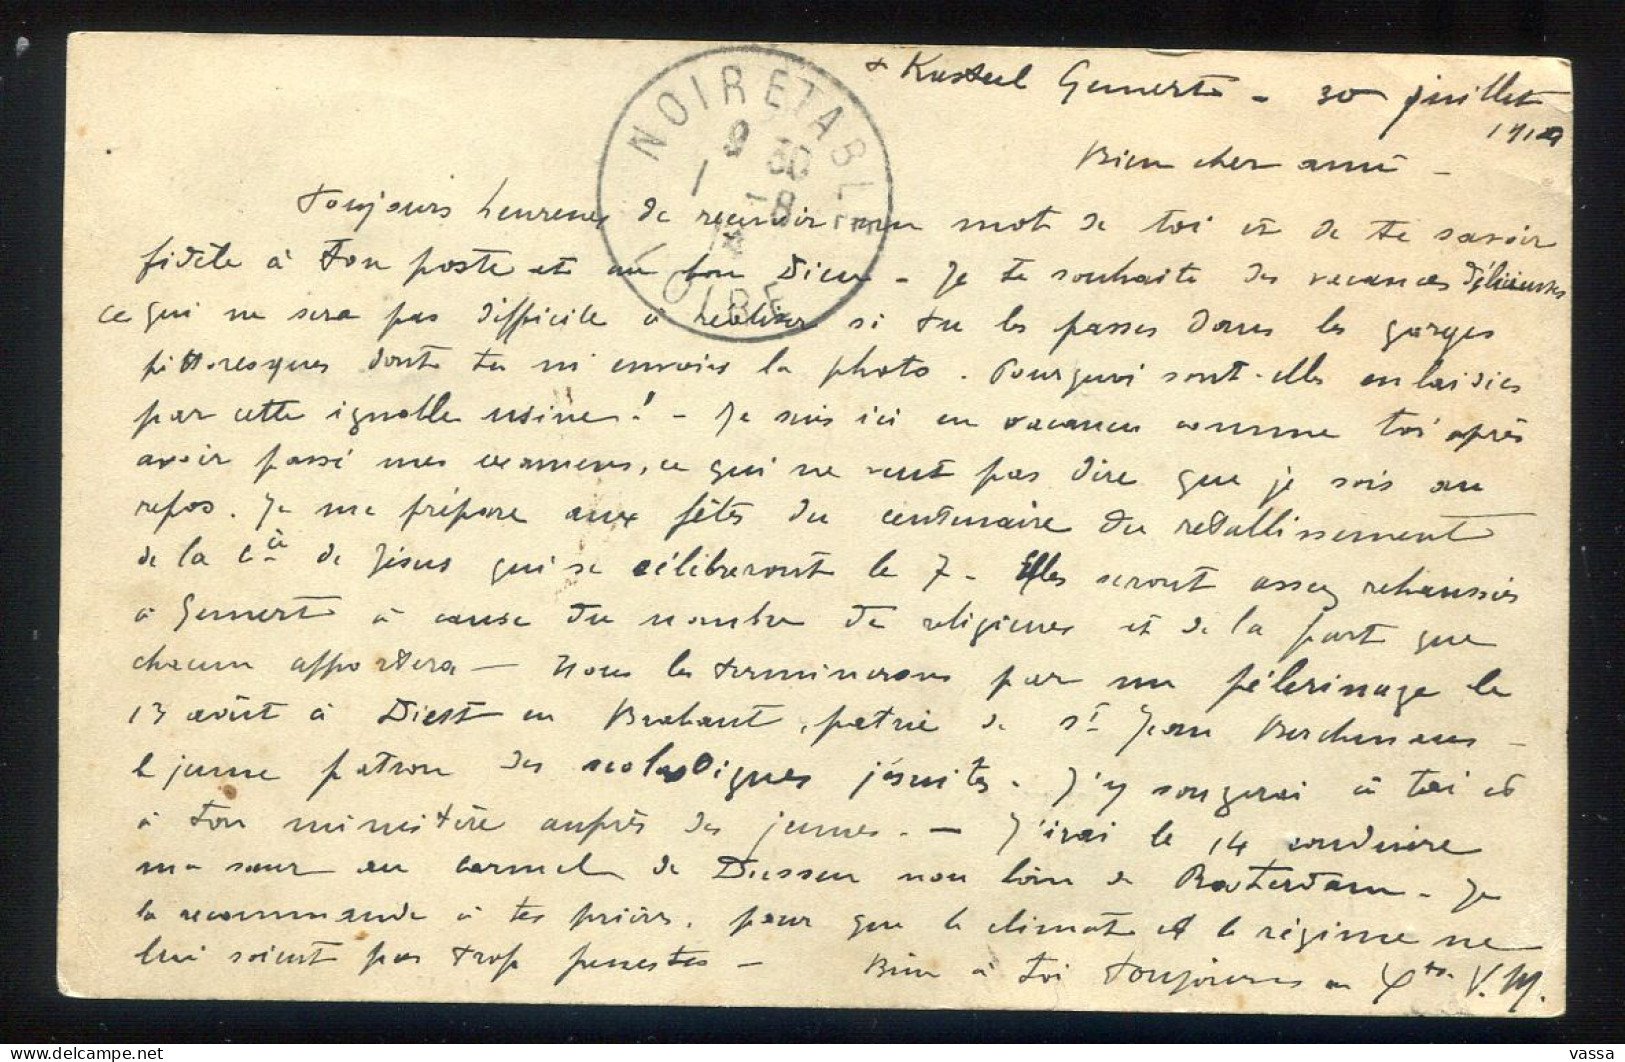 + Kasteel Gemert - 30 juillet
1914
Bien cher ami -
Toujours heureux de recevoir un mot de toi et de te savoir
fidèle à ton poste et au bon Dieu - Je te souhaite des vacances délicieuses
ce qui ne sera pas difficile à réaliser si tu les passes dans les gorges
pittoresques dont tu m'envoies la photo. Pourquoi sont-elles enlaidies
par cette ignoble usine! - Je suis ici en vacances comme toi après
avoir passé mes examens, ce qui ne veut pas dire que je sois au
repos. Je me prépare aux fêtes du centenaire du rétablissement
de la Cie de Jésus qui se célébreront le 7 - Elles seront assez rehaussées
à Gemert à cause du nombre de religieux et de la part que
chacun apportera - Nous les terminerons par un pélerinage le
13 août à Diest en Brabant, patrie de St Jean Berchmans -
le jeune patron des scolastiques jésuites. J'y songerai à toi et
à ton ministère auprès des jeunes. - J'irai le 14 conduire
ma sœur au carmel de non loin de Rotterdam - Je
la recommande à tes prières, pour que le climat et le régime ne
lui soient pas trop funestes - Bien à toi toujours en Xto. V.M.
NOIRETABLE
9 30
1 -8
14
LOIRE
vassa
delcampe.net